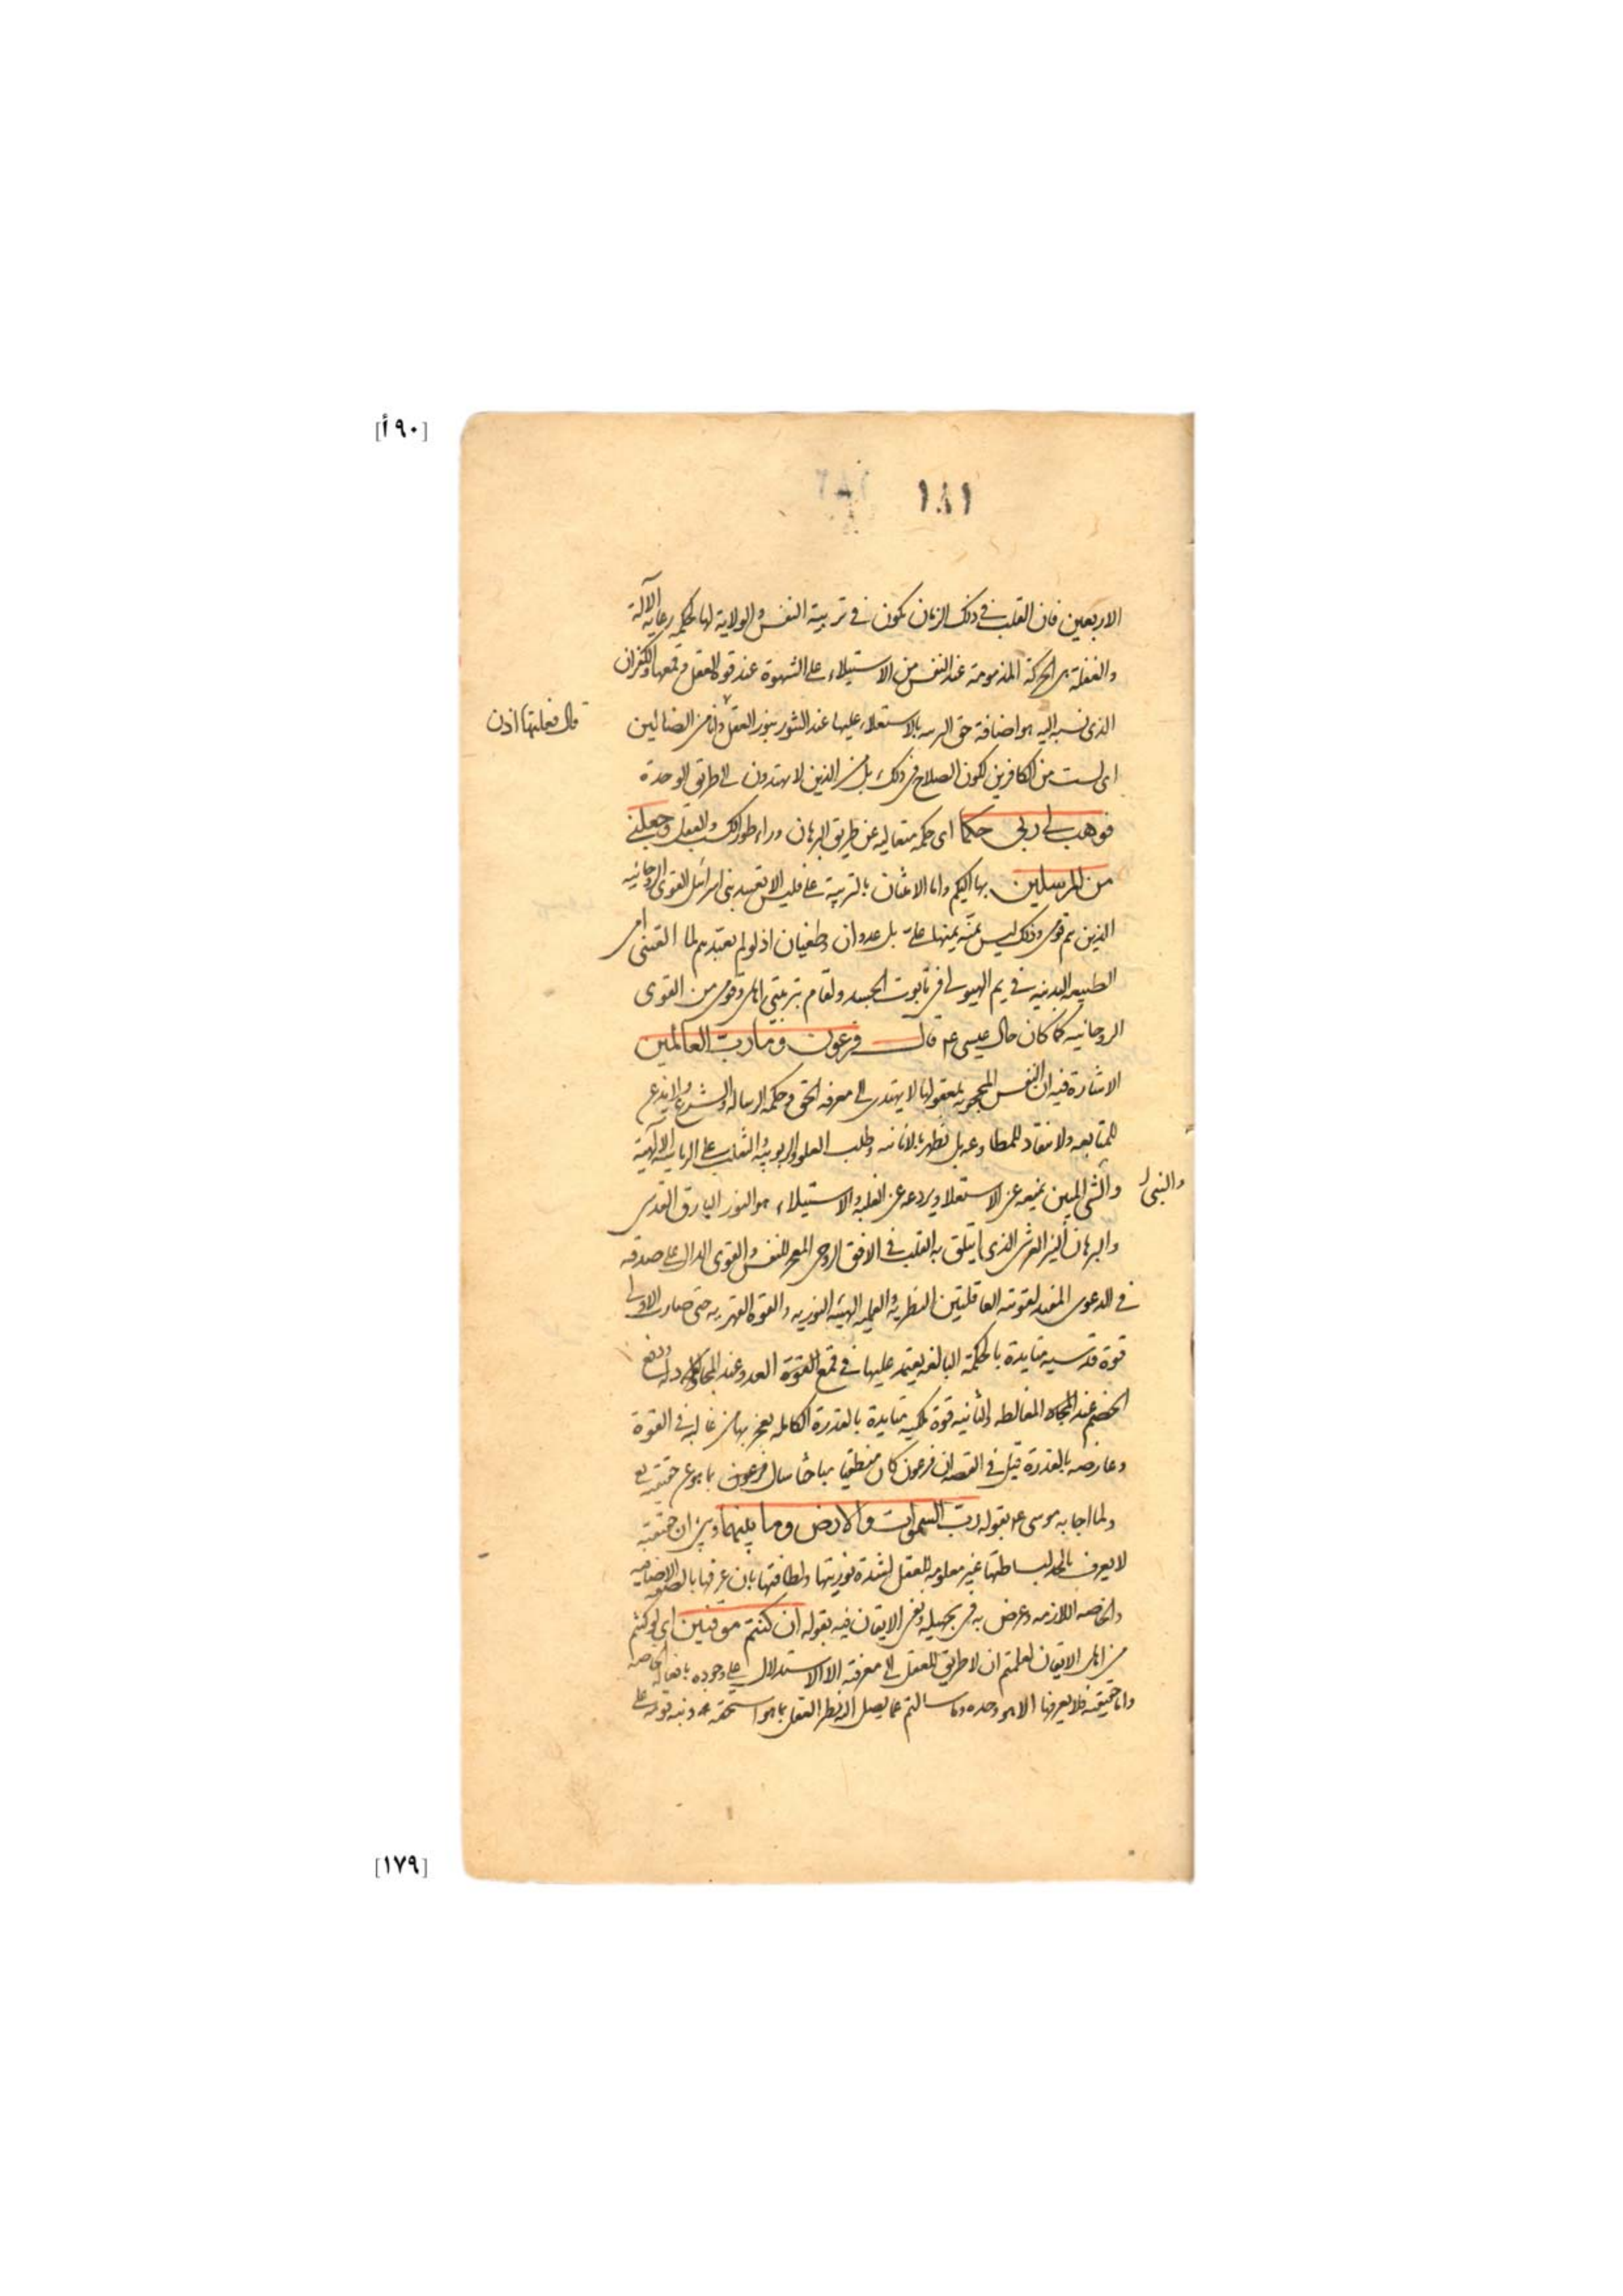 [٩٠أ]
١٨١
الاربعين فان القلب فى ذلك الزمان يكون فى تربية النفس والولاية لها بحكمه رعاية الآلة
والفعلة هى الحركة المذمومة عند النفس من الاستيلاء على الشهوة عند قوة العقل وقمعها والكفران
الذى نسبه اليه هو اضافة حق التربيه بالاستعلاء عليها عند التنور بنور العقل وانا من الضالين
قال فعلتها اذن
اى لست من الكافرين لكون الصلاح فى ذلك بل من الذين لا يهتدون الى طريق الوحدة
فوهب لى ربى حكما اى حكمه متعاليه عن طريق البرهان وراء طور الكسب والعقل وجعلنى
من المرسلين بها اليكم واما الامتنان بالتربية على فليس الا تعبيد بنى اسرائيل القوى الروحانيه
الذين هم قومى وذلك ليس بمنة يمنها على بل عدوان وطغيان اذ لو لم تعبدهم لما القتنى امى
الطبيعه البدنيه فى يم الهيولى فى تابوت الجسد ولقام بتربيتى اهلى وقومى من القوى
الروحانيه كما كان حال عيسى ع م قال فرعون وما رب العالمين
الاشارة فيه ان النفس المحجوبه بمعقولها لا يهتدى الى معرفه الحق وحكمه الرساله والشرع ولا يذعن
للمتابعه ولا تنقاد للمطاوعه بل تظهر بالانانيه وطلب العلو والربوبيه والتغلب على الرياسه الالهيه
والشئ المبين يمنعه عن الاستعلا ويردعه عن الغلبه والاستيلاء هو النور البارق القدسى
والبرهان النير العرشى الذى ايتلق به القلب فى الافق الروحى المعجز للنفس والقوى الدال على صدقه
فى الدعوى المفيد لقوتيه العاقلتين النظريه والعمليه الهيئه النوريه والقوة القهريه حتى صارت الاولى
قوة قدسيه متايدة بالحكمة البالغه يعتمد عليها فى قمع العدو عند المجادله ودفع
الخصم عند المغالطه والثانيه قوة ملكيه متايدة بالقدرة الكامله يعجز بها من غالبه فى القوة
وعارضه بالقدرة قيل فى القصه ان فرعون كان منطقيا مباحثا سال فرعون بما هو عن حقيقته تع
ولما اجابه موسى ع م بقوله رب السموات والارض وما بينهما وبين ان حقيقته
لا يعرف بالحد لبساطتها غير معلومه للعقل لشدة نوريتها ولطافتها بان عرفها بالصفه الاضافيه
والخاصه اللازمه وعرض به فى تجهيله ونفى الايقان فيه بقوله ان كنتم موقنين اى لو كنتم
من اهل الايقان لعلمتم ان لا طريق للعقل الى معرفته الا الاستدلال على وجوده بافعاله الخاصه
واما حقيقته فلا يعرفها الا هو وحده وما سالتم عما يصل اليه نظر العقل
[١٧٩]